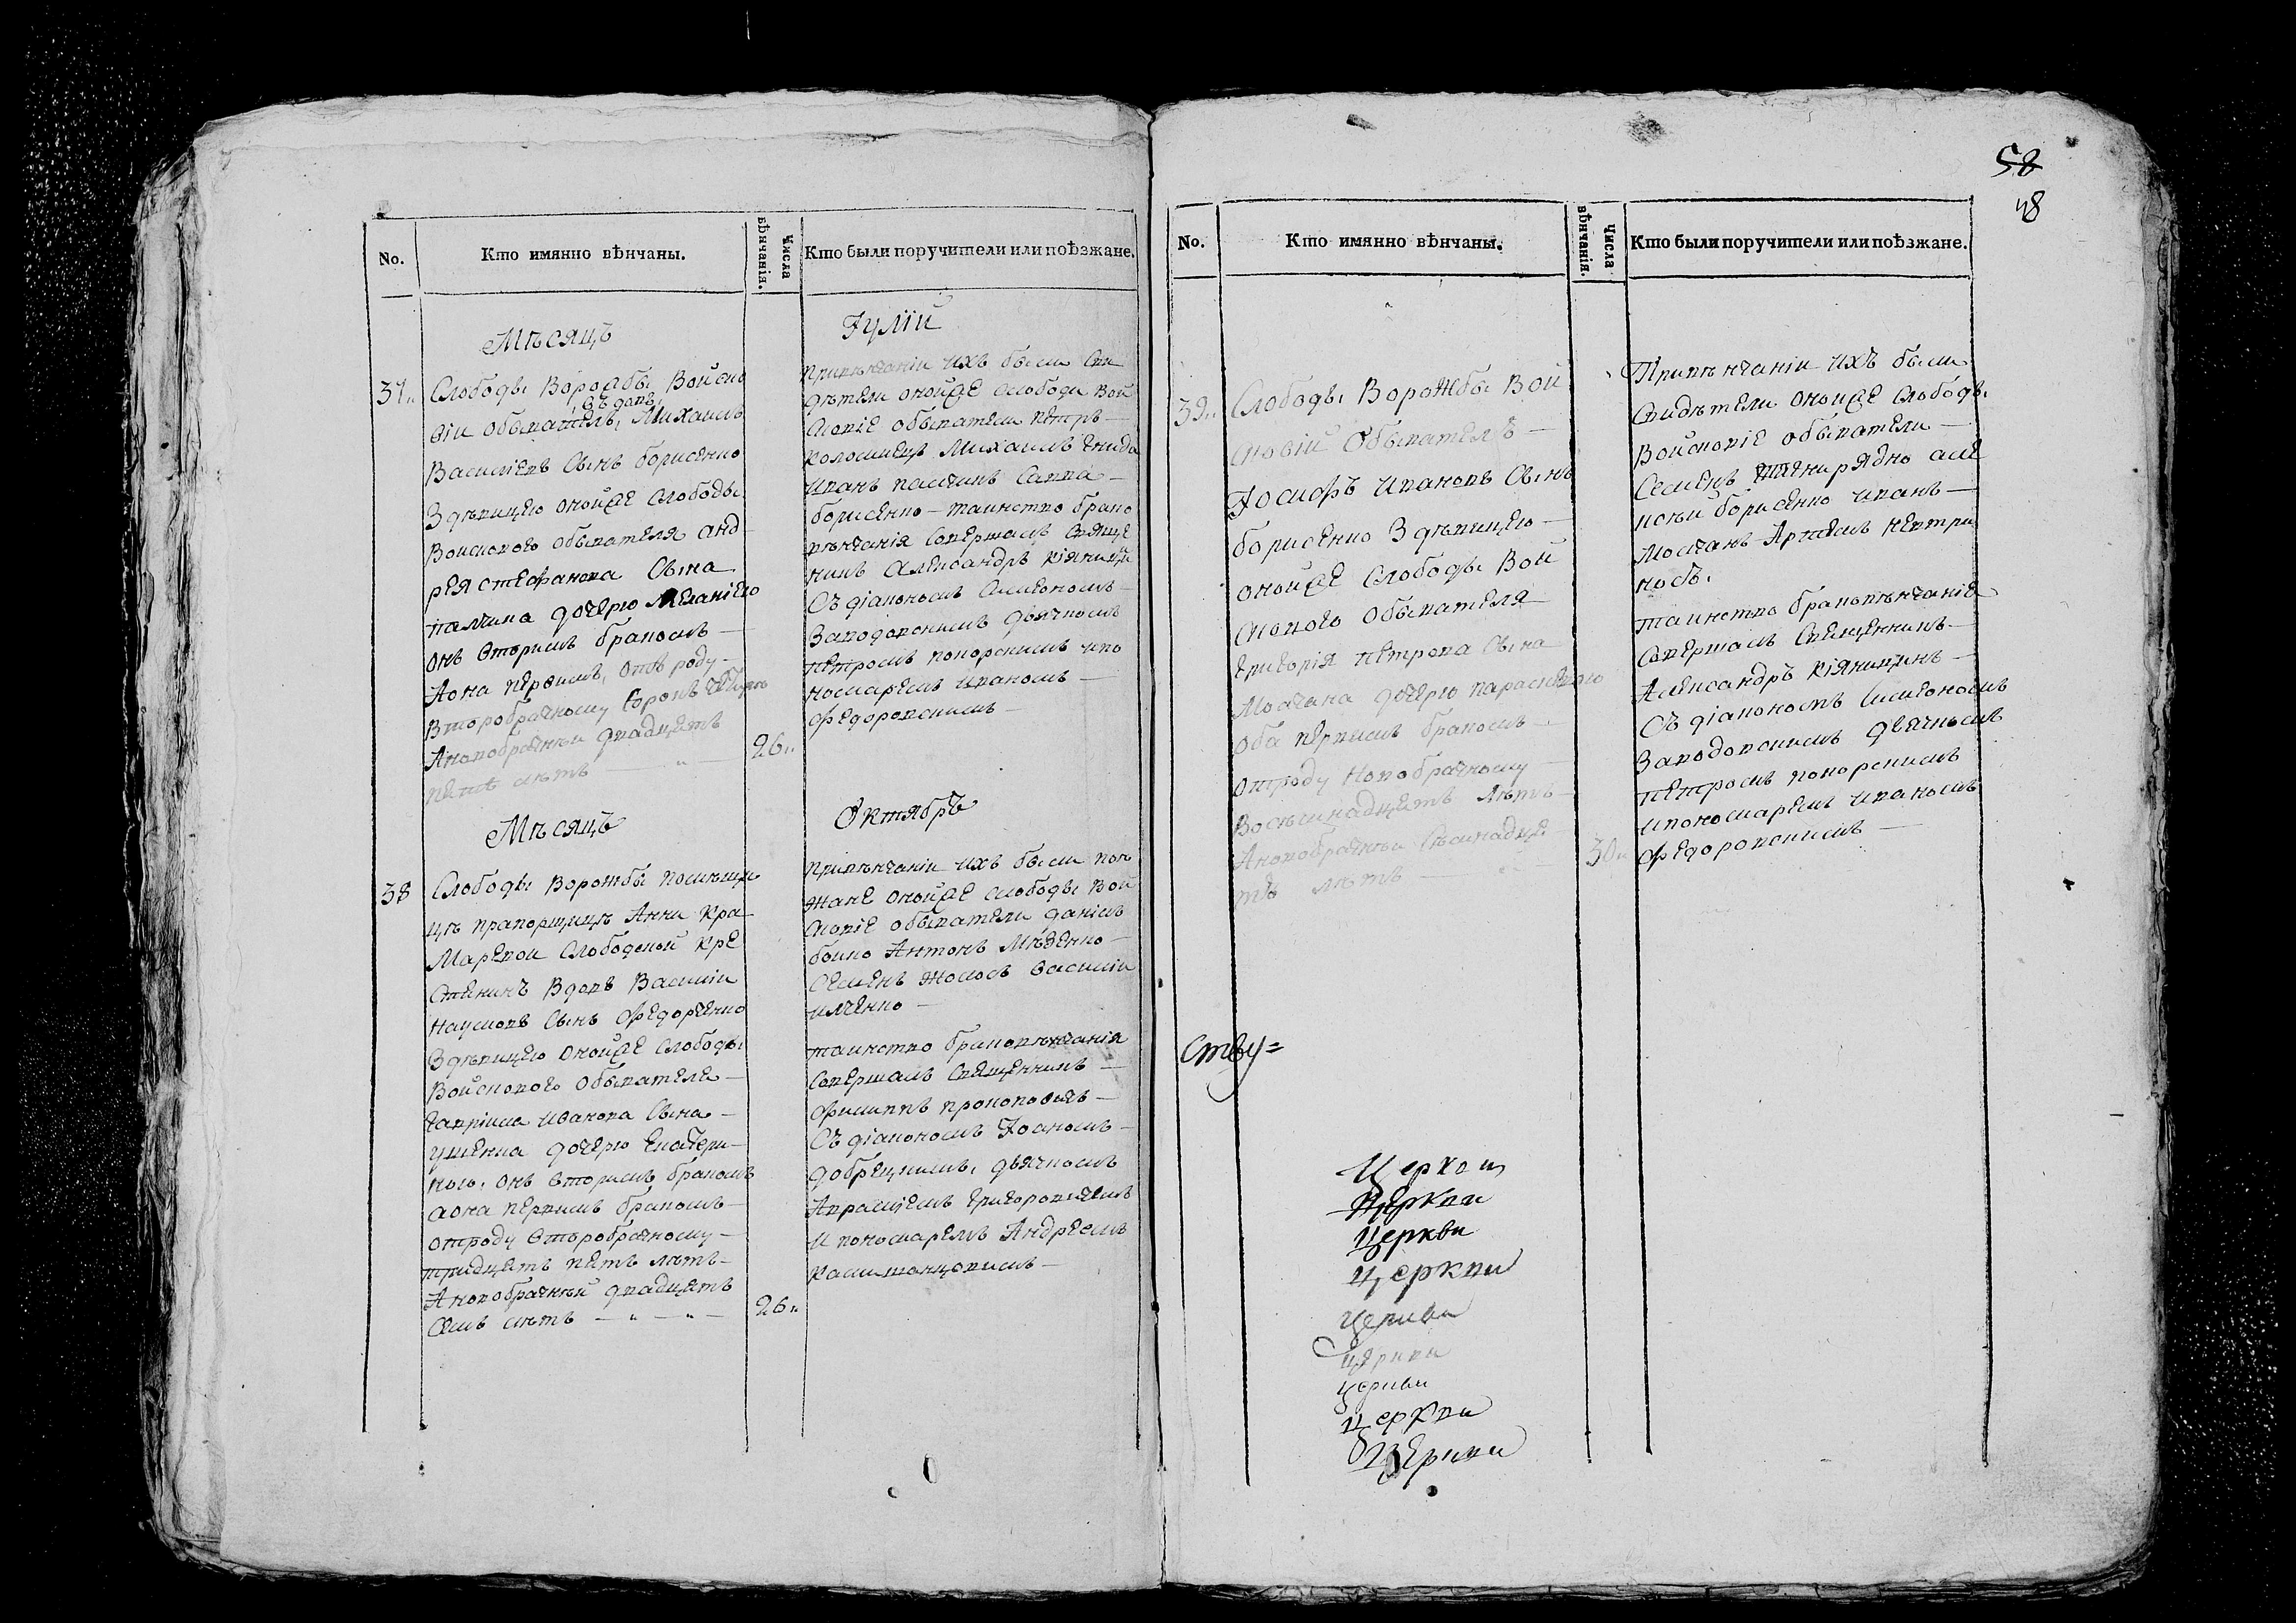 No.
Кто имянно вѣнчаны.
Числа
вѣнчанія.
Кто были поручители или поѣзжане.
Мѣсяцъ
Іулій
37.
Слободы Ворожбы Войско
вій обыватель, вдовъ, Михаилъ
Василіевъ Сынъ борисенко
Здѣвицею онойже Слободы
Войскового обывателя анд
рея стефанова Сына
палчина дочерю Меланіею
онъ вторимъ бракомъ —
Аона первимъ, отъ роду —
Второбрачному Сорокъ
Ановобрачнѣй двадцеть
петъ лѣтъ — „ —
26.
Привѣнчаніи ихъ были Сви
дѣтели онойже слободи Вой
сковіе обыватели петръ —
коломиецъ Михаилъ
иванъ палчинъ Савва —
борисенко — таинство брако
вѣнчанія Совершалъ Свяще
никъ Александръ кіяницинъ
Съ діакономъ Симеономъ —
Заводовскимъ дьячкомъ
петромъ поворскимъ ипо
номаремъ иваномъ —
федоровскимъ —
Мѣсяцъ
Октябръ
38
Слободы Ворожбы помѣщи
цѣ прапорщицѣ Анни Кра
Маревой Слободской кре
стянинъ Вдовъ Василій
Наумовъ Сынъ Федорченко
Здѣвицею онойже Слободы
Войскового обывателя —
гавріила иванова Сына —
ушенка дочерю Екатери
ною. онъ вторимъ бракомъ
аона первимъ бракомъ —
отроду второбрачному —
тридцеть петъ лѣтъ —
Ановобрачнѣй двадцеть
Семъ лѣтъ — „ — „ —
26.
Привѣнчаніи ихъ были поѣ
жане онойже слободы Вой
сковіе обыватели данилъ
бойко Антонъ Мѣденко —
Семенъ жолосъ василий
илченко —
таинство браковѣнчанія
Совершалъ Священникъ —
филиппъ прокоповичъ —
Съ діакономъ Іоаномъ —
добрецкимъ, дьячкомъ
Аврамиемъ григоровичемъ
и пономаремъ Андреемъ
касимонцовимъ —
58
48
No.
Кто имянно вѣнчаны.
Числа
вѣнчанія.
Кто были поручители или поѣзжане.
39.
Слободы Ворожбы Вой
сковій обыватель —
Іосифъ ивановъ Сынъ
борисенко Здѣвицею —
онойже Слободы Вой
скового обывателя
григорія петрова Сына
Молчана дочерю параскевею
оба первимъ бракомъ —
отроду Новобрачному —
Восемнадцеть лѣтъ —
Ановобрачнѣй Семнадце
тъ лѣтъ —
30.
Привѣнчаніи ихъ были
Свидѣтели онойже слободы
Войсковіе обыватели —
Семенъ але
ксѣй борисенко иванъ —
Молчанъ Артемъ
таинство браковѣнчанія
Совершалъ Священникъ —
Александръ кіяницинъ —
Съ діакономъ Симеономъ
Заводовскимъ дьячкомъ
петромъ поворскимъ
ипономаремъ иваномъ
федоровскимъ —
ству=
Церкви
церкви
Церкви
церкви
церкви
церкви
церкви
церкви
Церкви